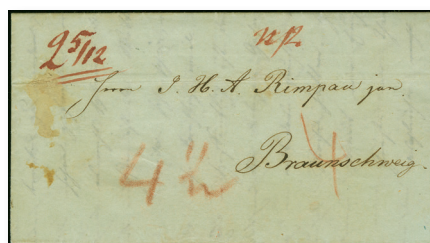 2 5/12
Herrn J. H. A. Rimpau jun.
Braunschweig.
4½